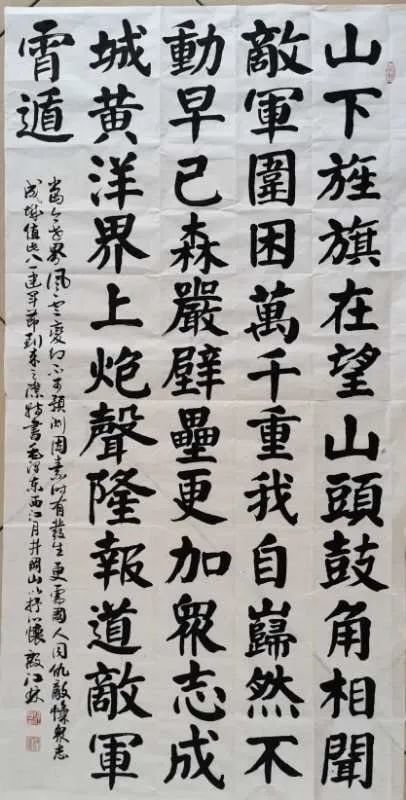 山下旌旗在望山頭鼓角相聞
敵軍圍困萬千重我自巋然不
動早已森嚴壁壘更加眾志成
城黃洋界上炮聲隆報道敵軍
霄遁
當今世界風雲變幻不可預測因素時有發生更需國人同仇敵愾眾志
成城值此八一建军節到來之際特書毛澤東西江月井岡山以抒心懷